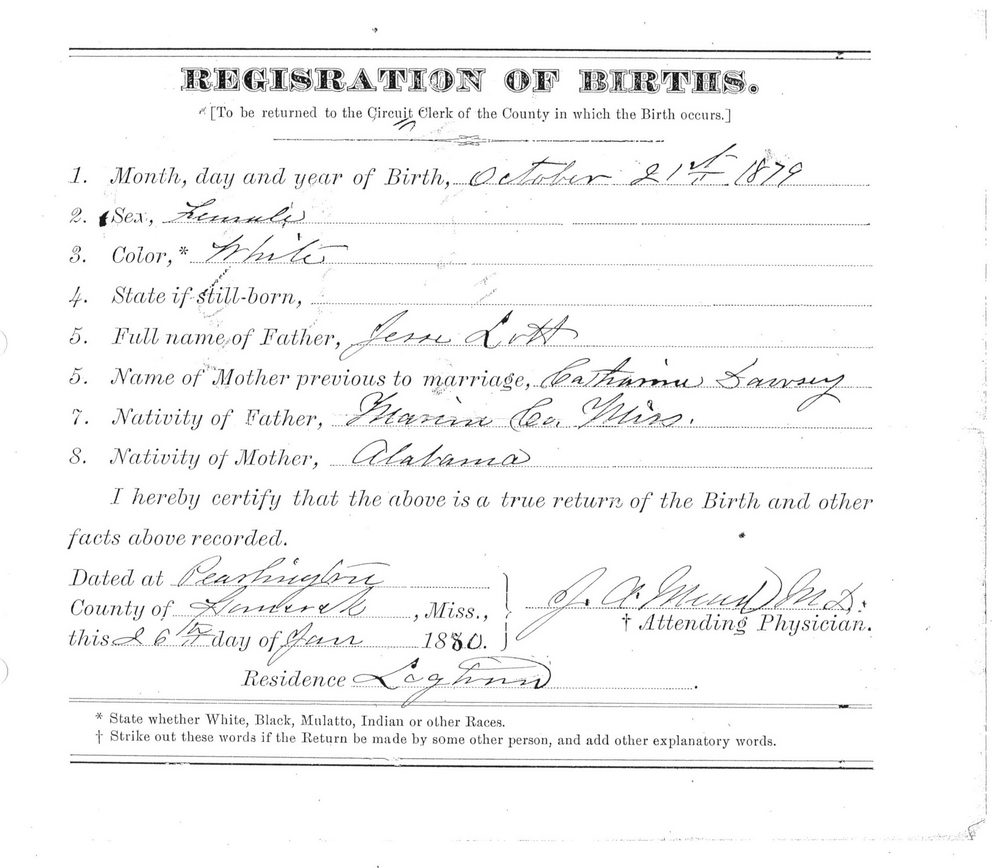 REGISRATION OF BIRTHS.
[To be returned to the Circuit Clerk of the County in which the Birth occurs.]
1. Month, day and year of Birth, October 21st 1879
2. Sex, Female
3. Color,* White
4. State if still-born,
5. Full name of Father, Jesse Lott
5. Name of Mother previous to marriage, Catharine Dawsey
7. Nativity of Father, Marion Co. Miss.
8. Nativity of Mother, Alabama
I hereby certify that the above is a true return of the Birth and other
facts above recorded.
Dated at Pearlington
County of Hancock, Miss.,
this 26th day of Jan 1880.
J. A. Mead M.D.
† Attending Physician.
Residence Logtown.
* State whether White, Black, Mulatto, Indian or other Races.
† Strike out these words if the Return be made by some other person, and add other explanatory words.